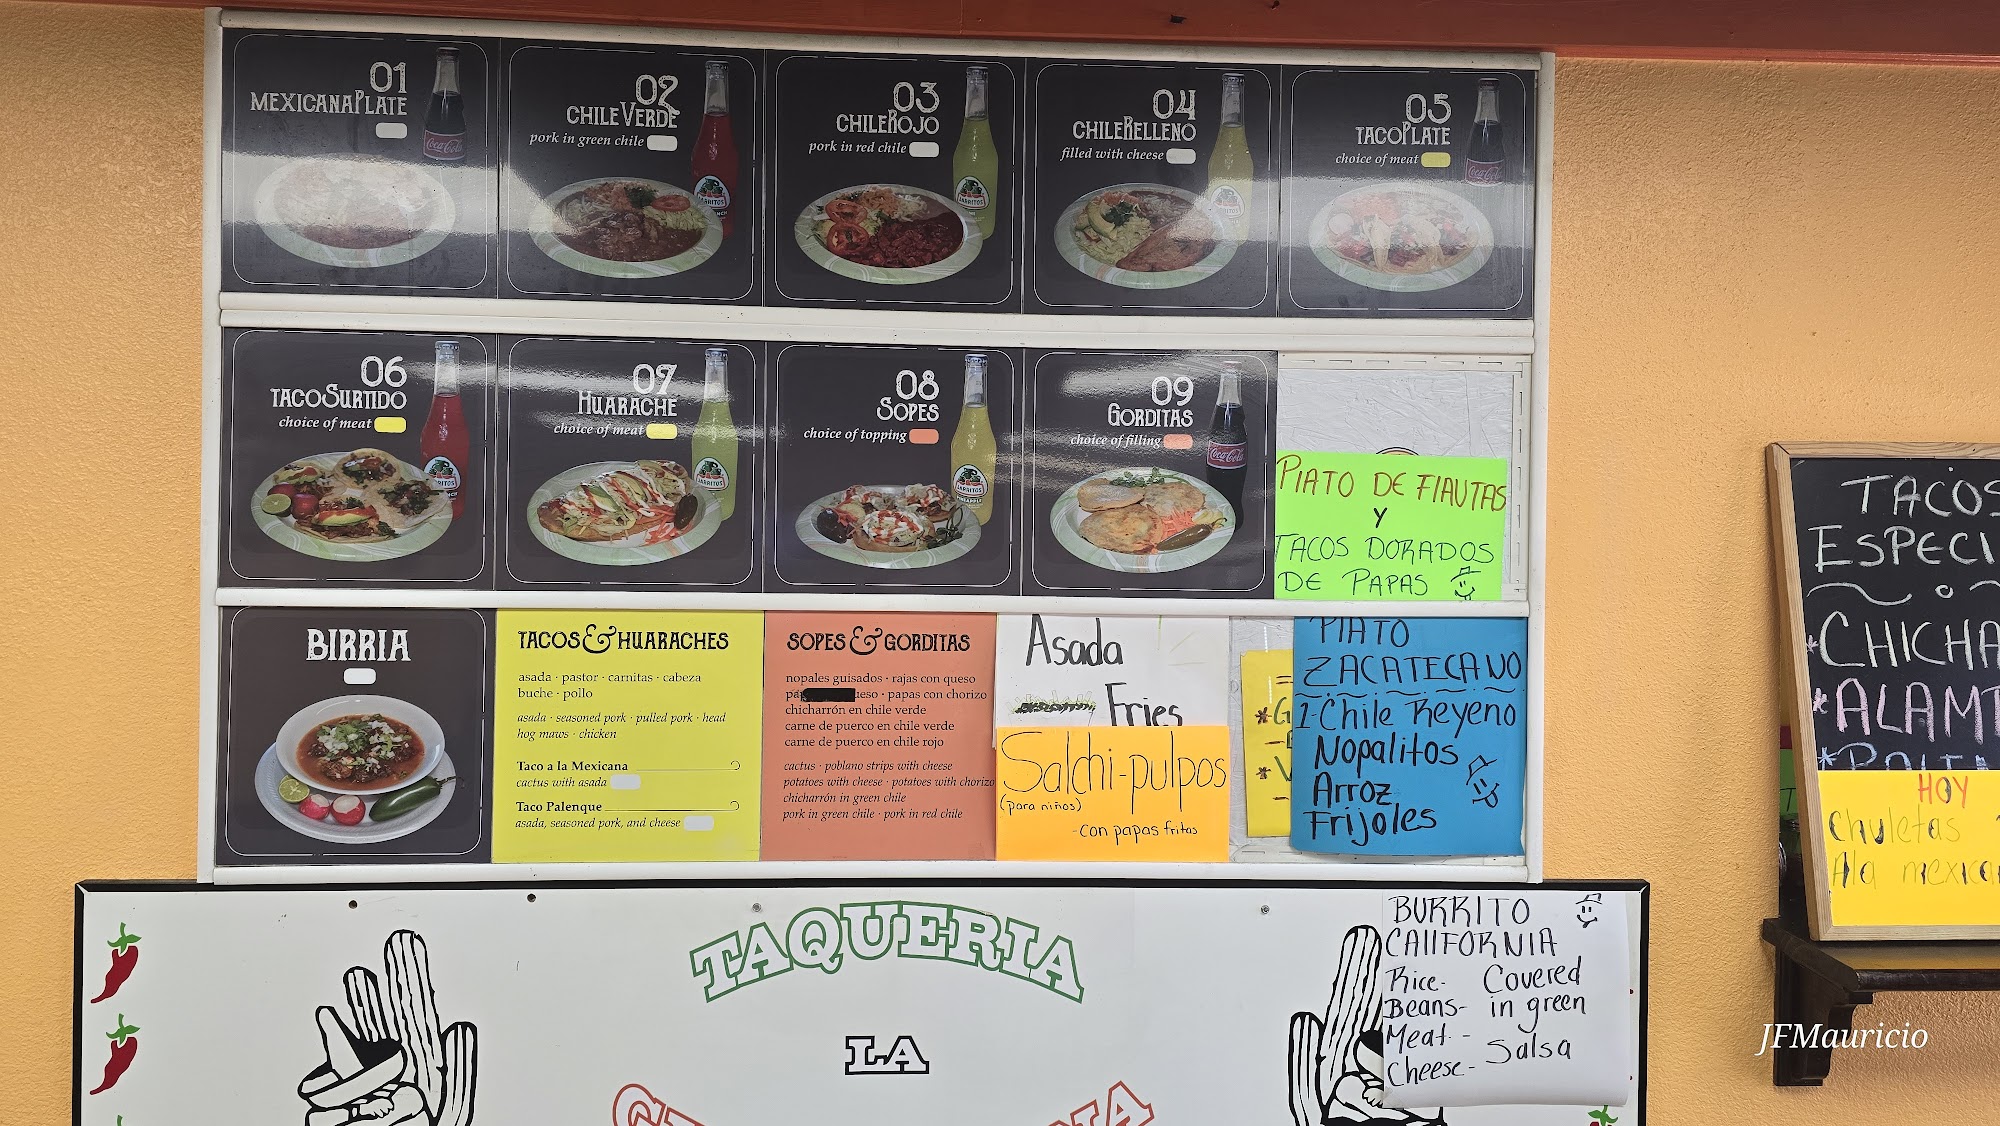 01
MEXICANA PLATE
Coca-Cola
02
CHILE VERDE
pork in green chile
JARRITOS
03
CHILE ROJO
pork in red chile
JARRITOS
04
CHILE RELLENO
filled with cheese
JARRITOS
05
TACO PLATE
choice of meat
Coca-Cola
06
TACO SURTIDO
choice of meat
JARRITOS
07
HUARACHE
choice of meat
JARRITOS
08
SOPES
choice of topping
JARRITOS
09
GORDITAS
choice of filling
Coca-Cola
PlATO DE FlAUTAS
Y
TACOS DORADOS
DE PAPAS
BIRRIA
TACOS & HUARACHES
asada · pastor · carnitas · cabeza
buche · pollo
asada · seasoned pork · pulled pork · head
hog maws · chicken
Taco a la Mexicana
cactus with asada
Taco Palenque
asada, seasoned pork, and cheese
SOPES & GORDITAS
nopales guisados · rajas con queso
· papas con chorizo
chicharrón en chile verde
carne de puerco en chile verde
carne de puerco en chile rojo
cactus · poblano strips with cheese
potatoes with cheese · potatoes with chorizo
chicharrón in green chile
pork in green chile · pork in red chile
Asada
Fries
Salchi-pulpos
(para niños)
-con papas fritas
PlATO
ZACATECANO
1-Chile Reyeno
Nopalitos
Arroz
Frijoles
TACOS
*
*
*
HOY
Chuletas
Ala
TAQUERIA
LA
BURRITO
CAlIFORNIA
Rice- Covered
Beans- in green
Meat- Salsa
Cheese-
JFMauricio